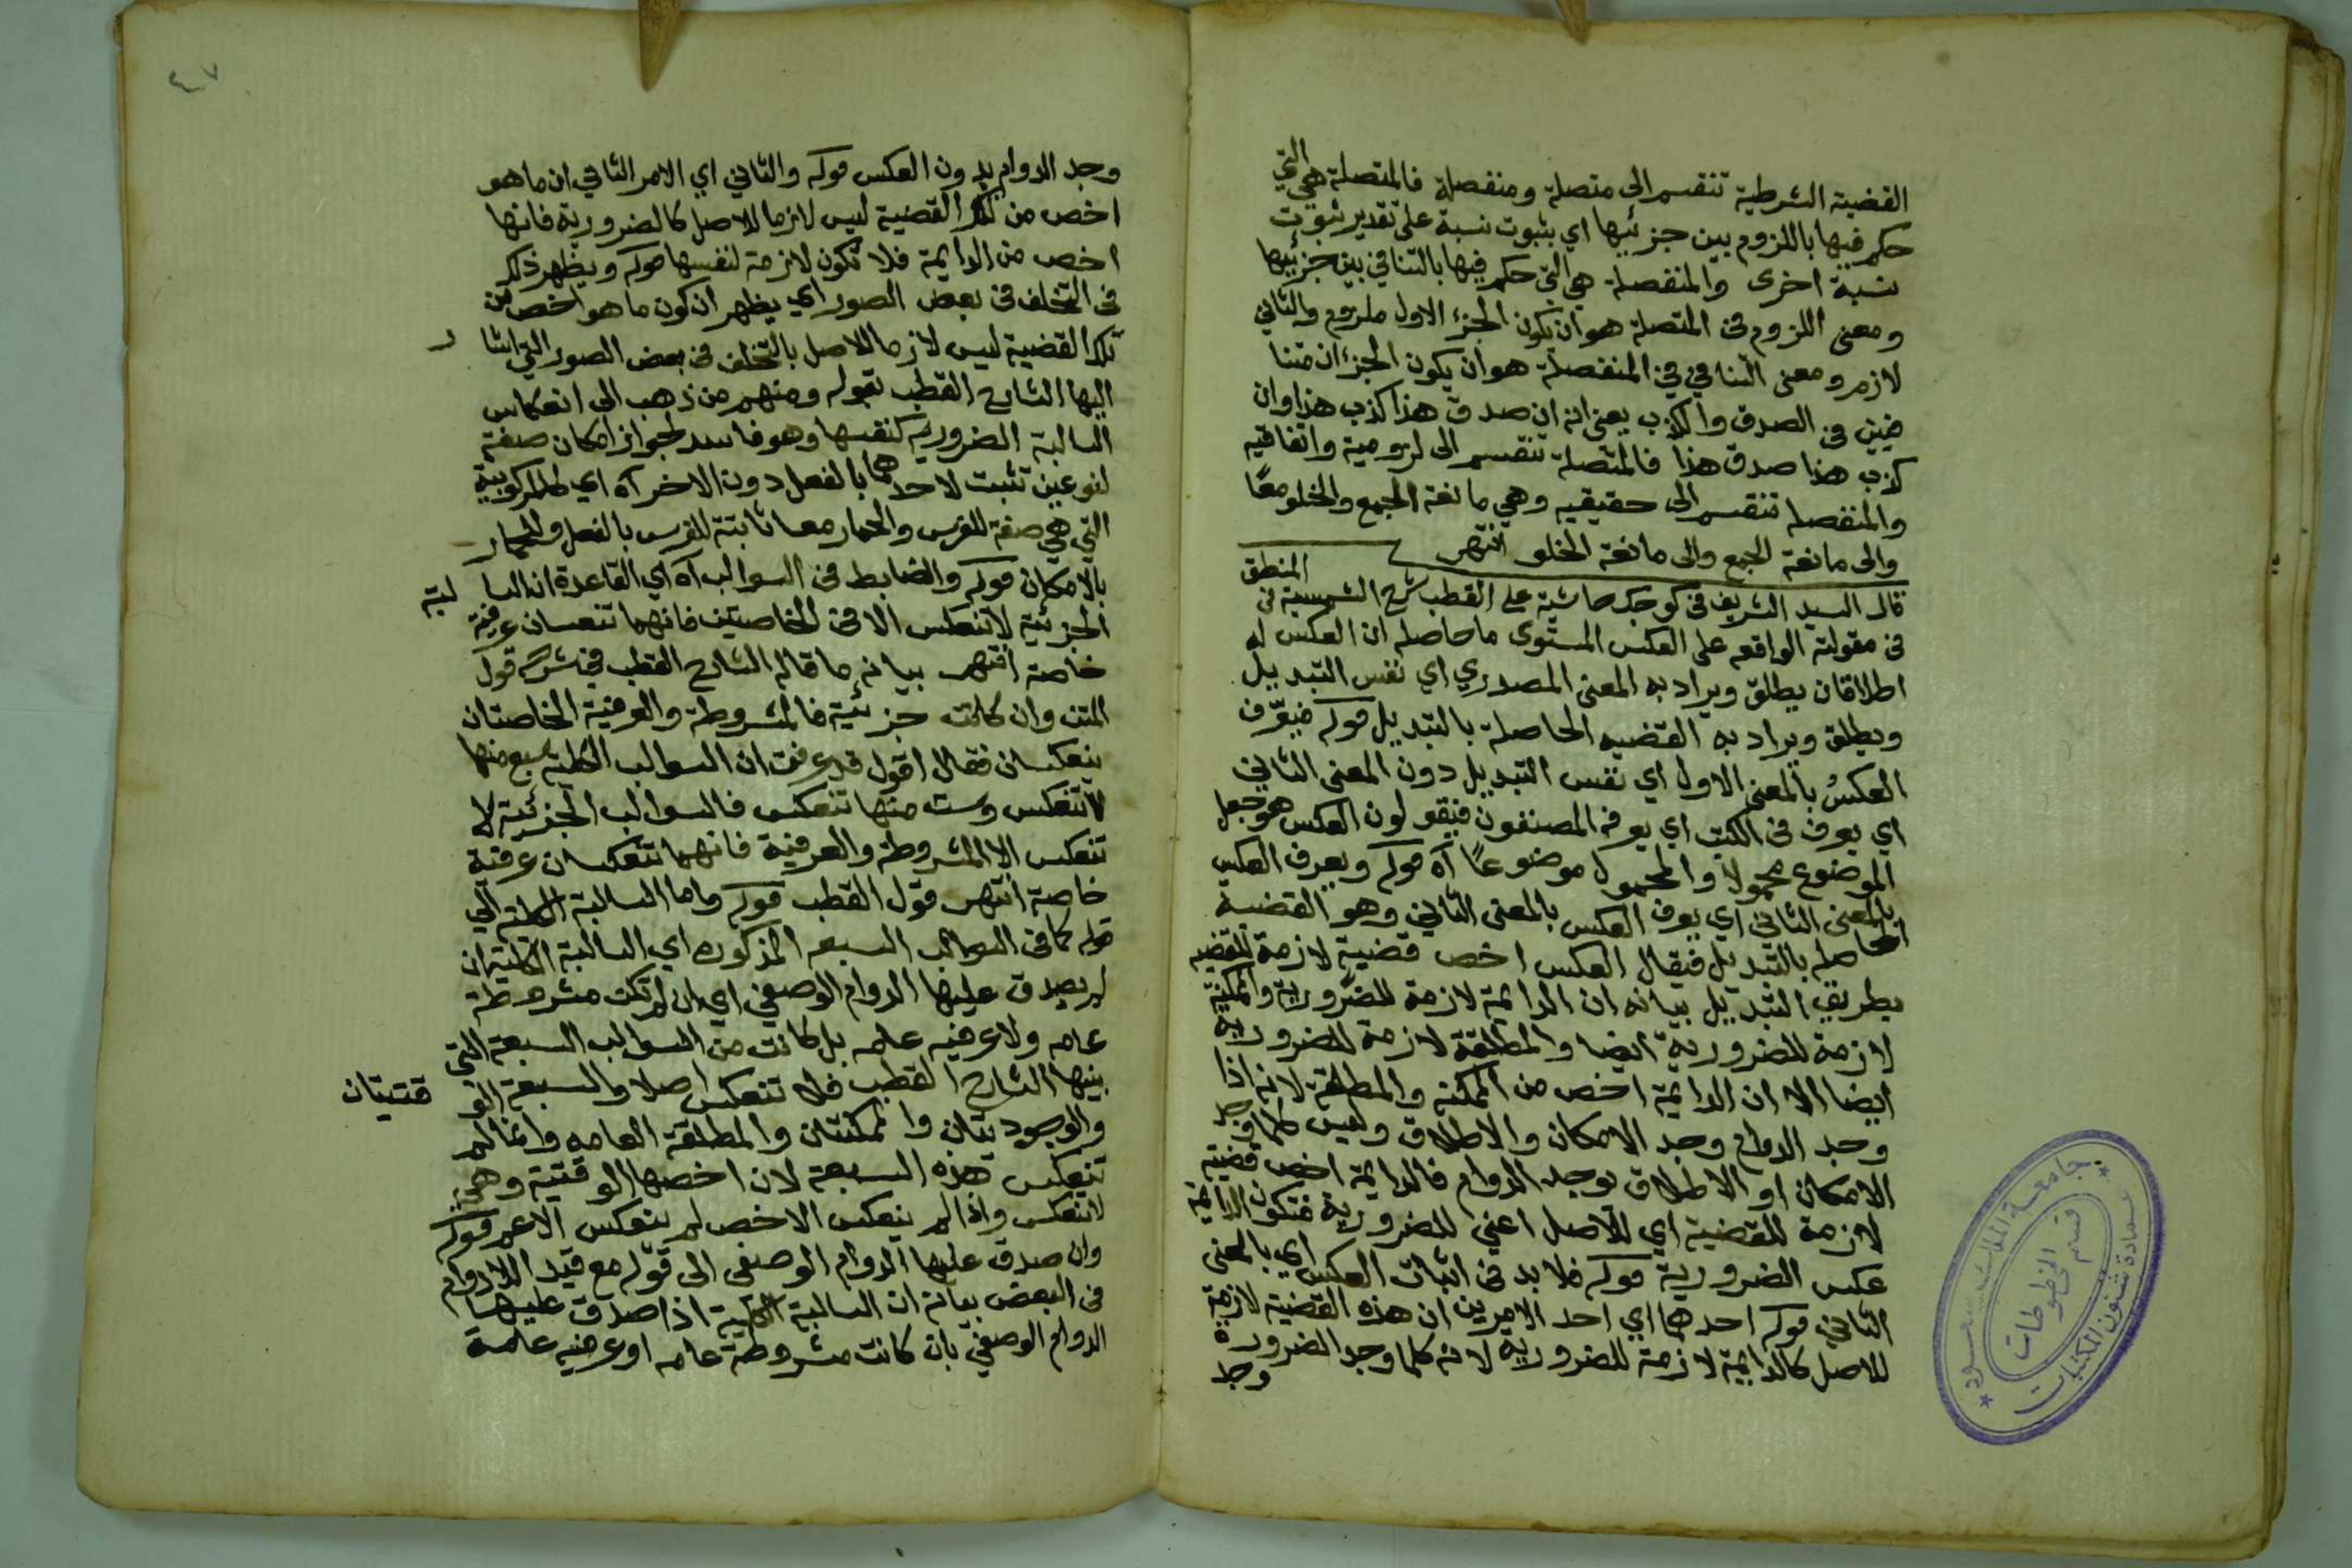 القضية الشرطية تنقسم الى متصلة ومنفصلة فالمتصلة هي التي
حكم فيها باللزوم بين جزئيها اي بثبوت نسبة على تقدير ثبوت
نسبة اخرى والمنفصلة هي التي حكم فيها بالتنافي بين جزئيها
ومعنى اللزوم في المتصلة هو ان يكون الجزء الاول ملزوم والثاني
لازم ومعنى التنافي في المنفصلة هو ان يكون الجزءان متنا
فيين في الصدق والكذب يعني انه ان صدق هذا كذب هذا وان
كذب هذا صدق هذا فالمتصلة تنقسم الى لزومية واتفاقيه
والمنفصلة تنقسم الى حقيقيه وهي مانعة الجمع والخلو معًا
والى مانعة الجمع والى مانعة الخلو انتهى
قال السيد الشريف في كوجك حاشية على القطب شرح الشمسية في المنطق
في مقولته الواقعه على العكس المستوى ما حاصله ان العكس له
اطلاقان يطلق ويراد به المعنى المصدري اي نفس التبديل
ويطلق ويراد به القضيه الحاصلة بالتبديل قوله فيعّرف
العكسُ بالمعنى الاول اي نفس التبديل دون المعنى الثاني
اي يعرف في الكتب اي يعرفه المصنفون فيقولون العكس هو جعل
الموضوع محمولا والمحمول موضوعًا اه قوله ويعرف العكس
بالمعنى الثاني اي يعرف العكس بالمعنى الثاني وهو القضية
الحاصله بالتبديل فيقال العكس اخص قضية لازمة للقضيه
بطريق التبديل بيانه ان الدايمة لازمة للضرورية والممكنة
لازمة للضرورية ايضا والمطلقة لازمة للضرورية
ايضا الا ان الدايمة اخص من الممكنة والمطلقة لانه اذا
وجد الدوام وجد الامكان والاطلاق وليس كلما وجد
الامكان او الاطلاق يوجد الدوام فالدايمة اخص قضية
لازمة للقضية اي للاصل اعني للضرورية فتكون الدايمة
عكس الضرورية قوله فلا بد في اثبات العكس اي بالمعنى
الثاني قوله احدهما اي احد الامرين ان هذه القضية لازمة
للاصل كالدايمة لازمة للضرورية لانه كلما وجد الضرورة
وجد
٤٧
وجد الدوام بدون العكس قوله والثاني اي الامر الثاني ان ما هو
اخص من تلك القضية ليس لازما للاصل كالضرورية فانها
اخص من الدايمة فلا تكون لازمة لنفسها قوله ويظهر ذلك
في التخلف في بعض الصور اي يظهر ان كون ما هو اخص من
تلك القضية ليس لازما للاصل بالتخلف في بعض الصور التي اشا ر
اليها الشارح القطب بقوله ومنهم من ذهب الى انعكاس
السالبة الضرورية كنفسها وهو فاسد لجواز امكان صفة
لنوعين تثبت لاحدهما بالفعل دون الاخر اه اي كالمركوبية
التي هي صفة للفرس والحمار معا ثابتة للفرس بالفعل وللحمار
بالامكان قوله والضابط في السوالب اه اي القاعدة ان السا لبة
الجزئية لا تنعكس الا في الخاصتين فانهما تنعسان عرفية
خاصة انتهى بيانه ما قاله الشارح القطب في شرح قول
المتن وان كانت جزئية فالمشروطة والعرفية الخاصتان
ينعكسان فقال اقول قد عرفت ان السوالب الكلية سبع منها
لا تنعكس وست منها تنعكس فالسوالب الجزئية لا
تنعكس الا المشروطة والعرفية فانهما تنعكسان عرفية
خاصة انتهى قول القطب قوله واما السالبة الكلية الى
قوله كما في السوالب السبعه المذكوره اي السالبة الكلية ان
لم يصدق عليها الدوام الوصفي اي ان لم تكن مشروطة
عامه ولا عرفيه عامه بل كانت من السوالب السبعة التي
بينها الشارح القطب فلا تنعكس اصلا والسبعة الو قتيتان
والوجوديتان والممكنتان والمطلقة العامه وانما لم
تنعكس هذه السبعة لان اخصها الوقتية وهي
لا تنعكس واذا لم ينعكس الاخص لم ينعكس الاعم قوله
وان صدق عليها الدوام الوصفي الى قوله مع قيد اللادوام
في البعض بيانه ان السالبة الكلية اذا صدق عليها
الدوام الوصفي بان كانت مشروطة عامه او عرفيه عامة
جامعة الملك سعود
عمادة شئون المكتبات
قسم المخطوطات